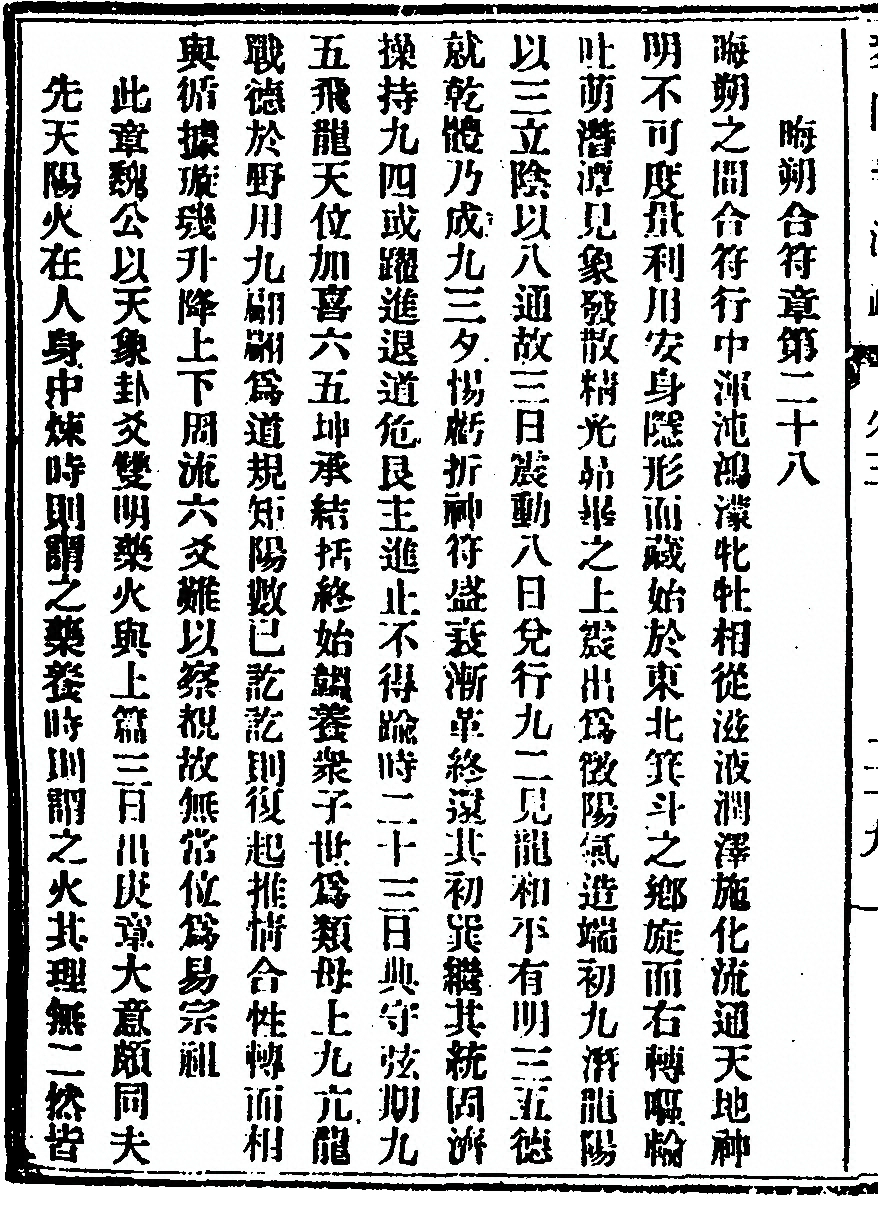 晦朔合符章第二十八
晦朔之間合符行中渾沌鴻濛牝牡相從滋液潤澤施化流通天地神
明不可度量利用安身隱形而藏始於東北箕斗之鄉旋而右轉嘔輪
吐萌潛潭見象發散精光昴畢之上震出爲徵陽氣造端初九潛龍陽
以三立陰以八通故三日震動八日兌行九二見龍和平有明三五德
就乾體乃成九三夕惕虧折神符盛衰漸革終還其初巽繼其統固濟
操持九四或躍進退道危艮主進止不得踰時二十三日典守弦期九
五飛龍天位加喜六五坤承結括終始韞養衆子世爲類母上九亢龍
戰德於野用九翩翩爲道規矩陽數已訖訖則復起推情合性轉而相
與循據璇璣升降上下周流六爻難以察覩故無常位爲易宗祖
此章魏公以天象卦爻雙明藥火與上篇三日出庚章大意頗同夫
先天陽火在人身中煉時則謂之藥養時則謂之火其理無二然皆